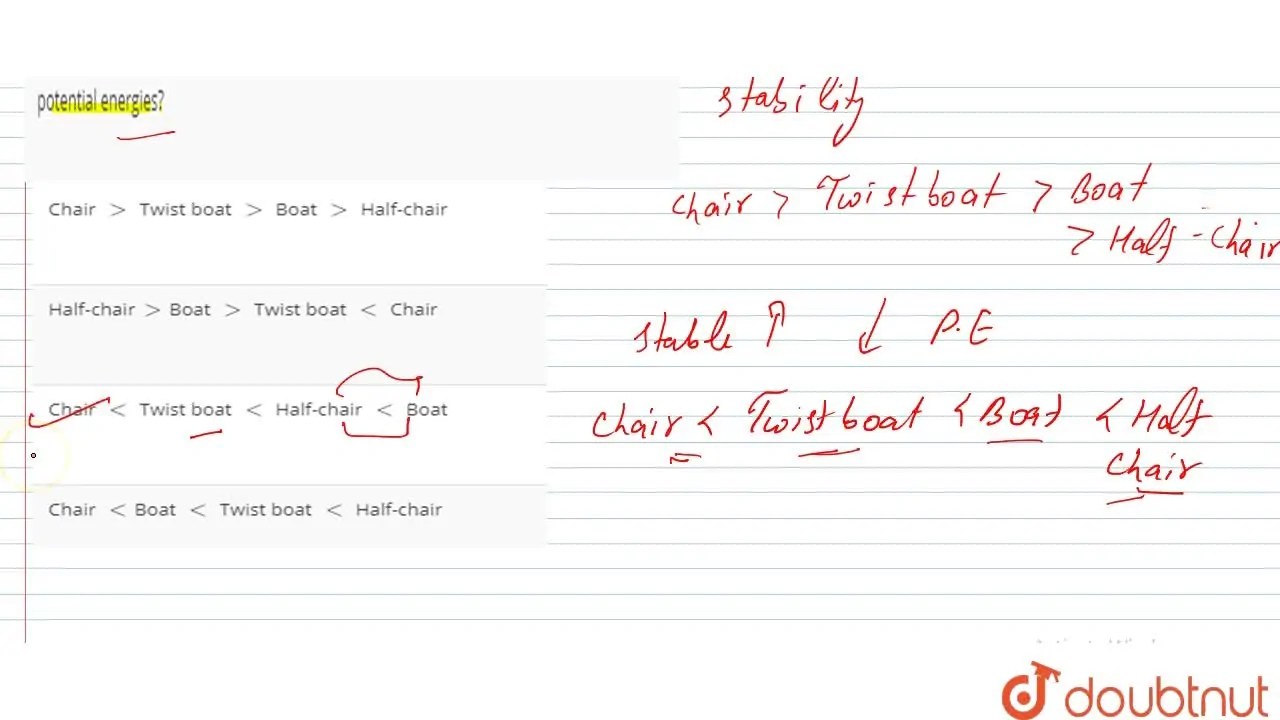 potential energies?
Chair > Twist boat > Boat > Half-chair
Half-chair > Boat > Twist boat < Chair
Chair < Twist boat < Half-chair < Boat
Chair < Boat < Twist boat < Half-chair
stability
chair > Twist boat > Boat
> Half-Chair
stable ↑ ↓ P.E
chair < Twist boat < Boat < Half
chair
doubtnut